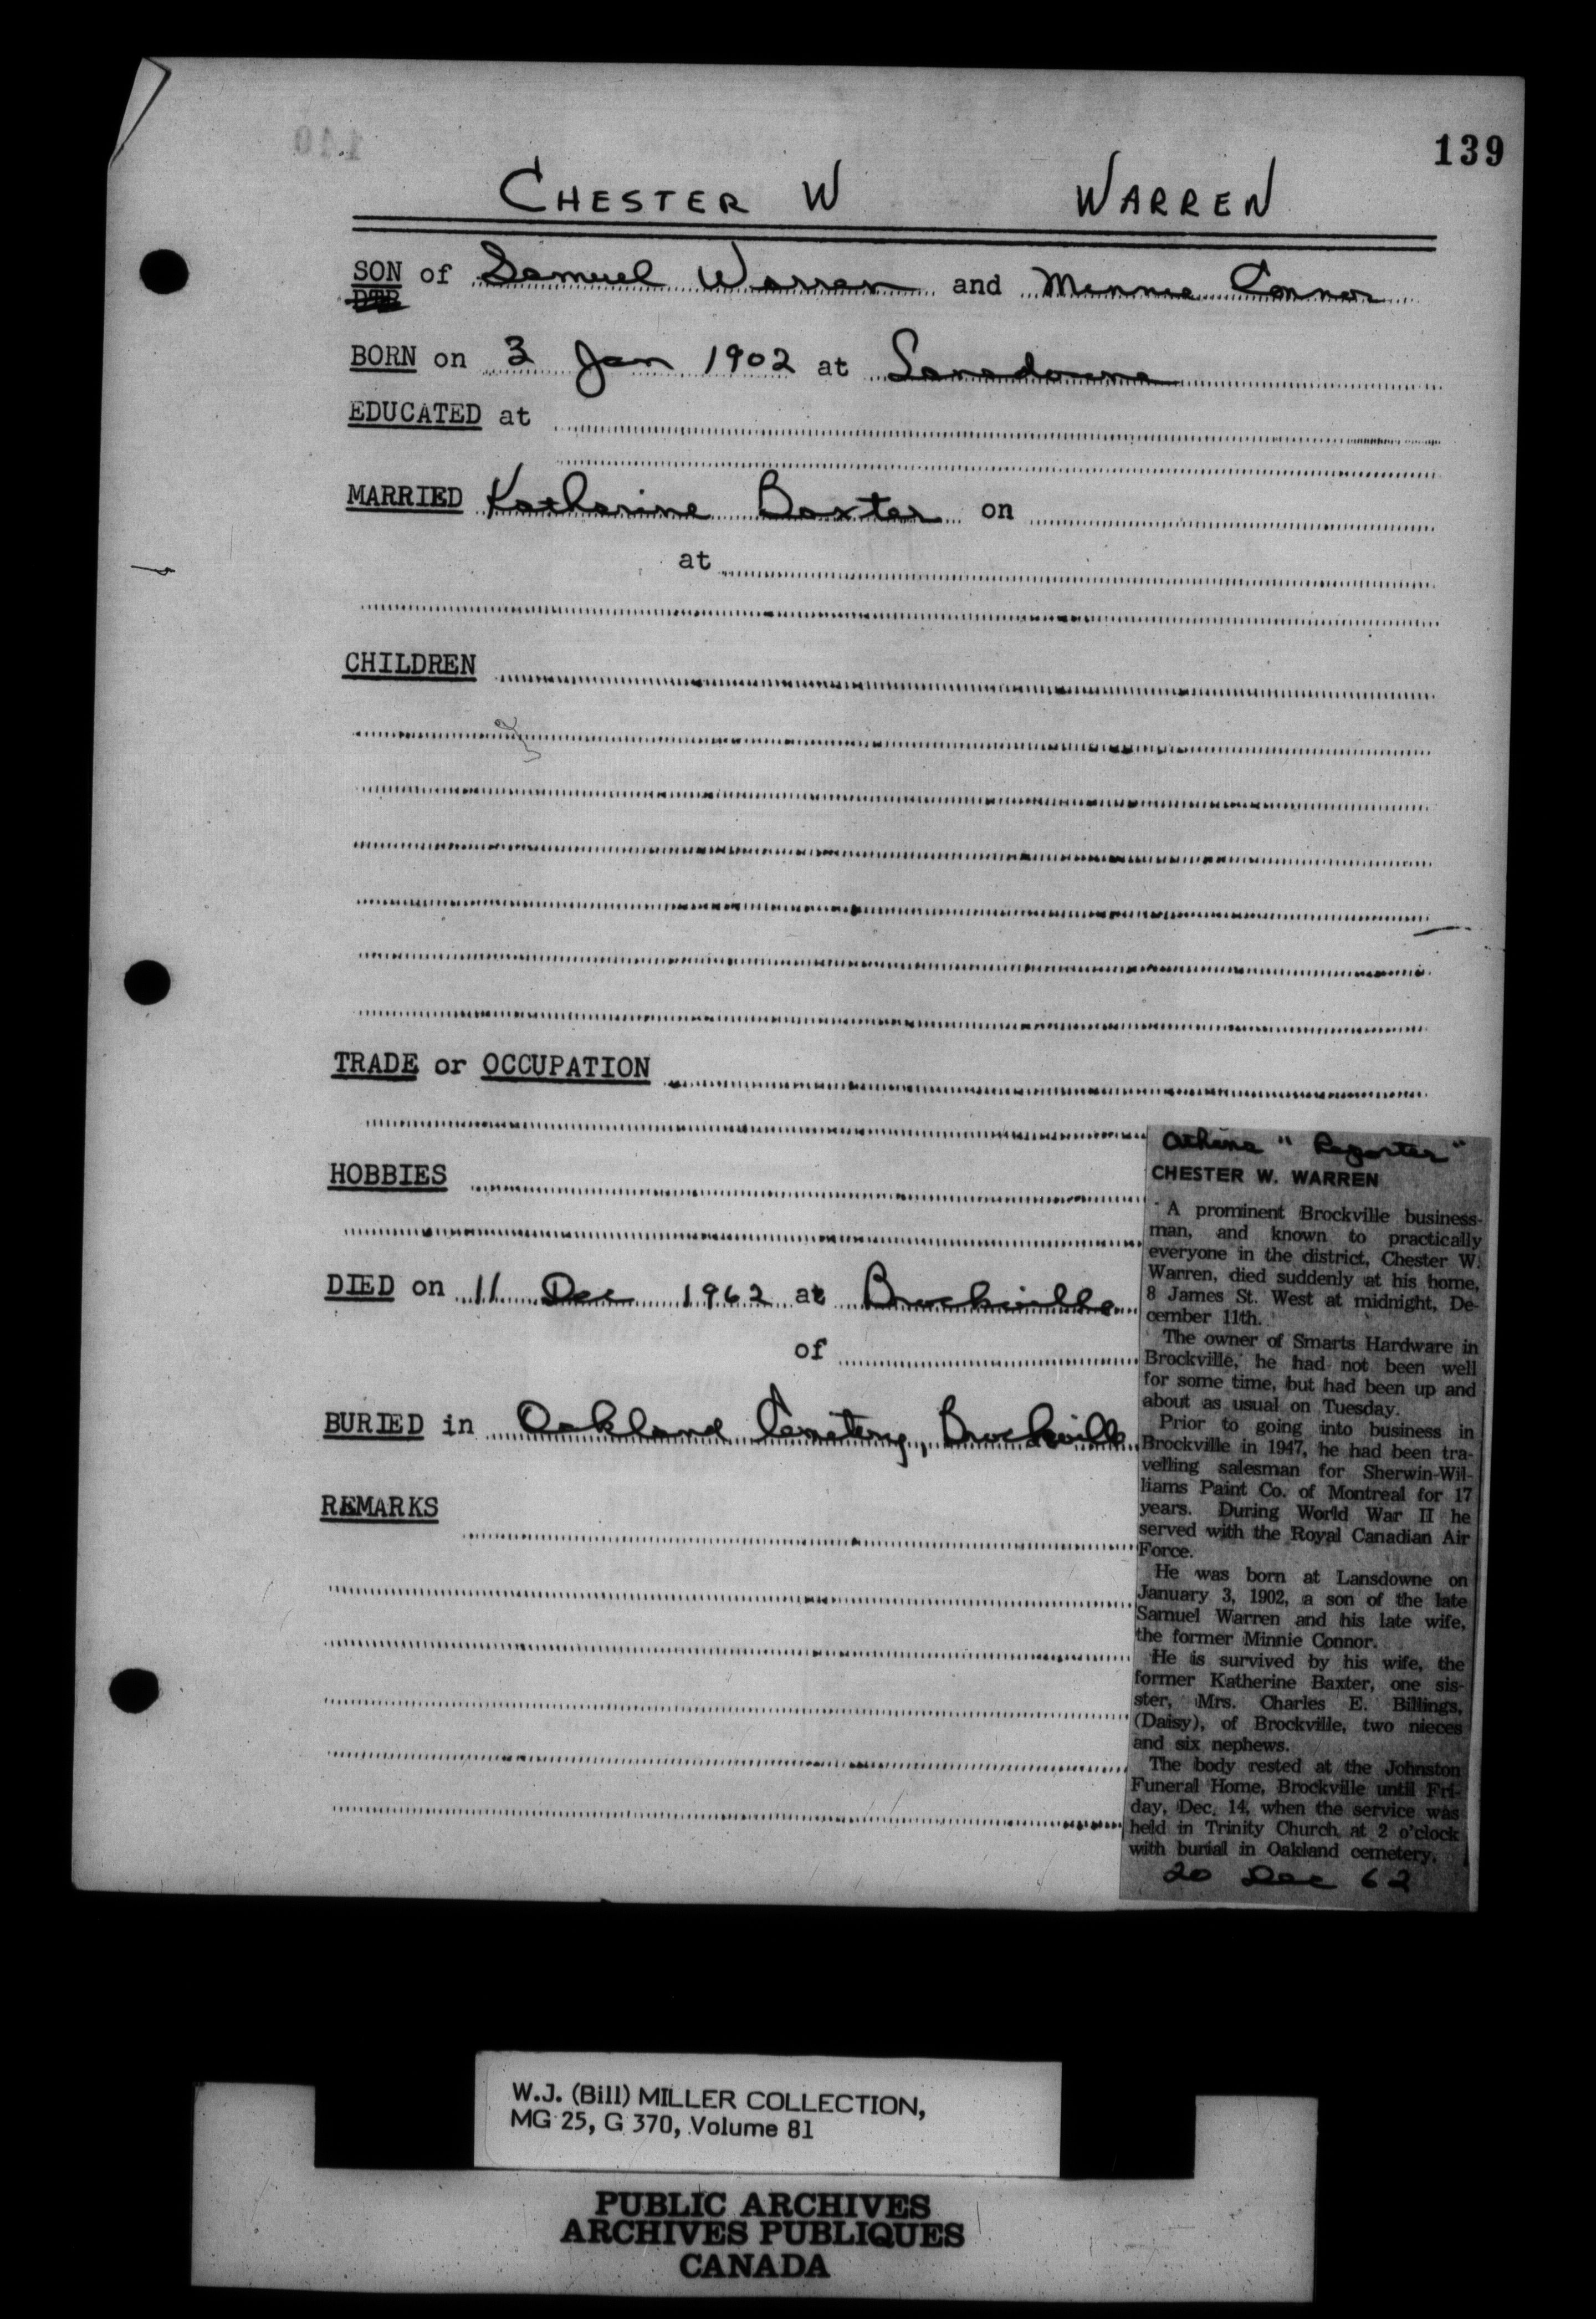 139
CHESTER W WARREN
SON of Samuel Warren and Minnie Connor
DTR
BORN on 3 Jan 1902 at Lansdowne
EDUCATED at
MARRIED Katharine Baxter on
at
CHILDREN
TRADE or OCCUPATION
HOBBIES
DIED on 11 Dec 1962 at Brockville
of
BURIED in Oakland Cemetery, Brockville
REMARKS
Athens "Reporter"
CHESTER W. WARREN
A prominent Brockville business-
man, and known to practically
everyone in the district, Chester W.
Warren, died suddenly at his home,
8 James St. West at midnight, De-
cember 11th.
The owner of Smarts Hardware in
Brockville, he had not been well
for some time, but had been up and
about as usual on Tuesday.
Prior to going into business in
Brockville in 1947, he had been tra-
velling salesman for Sherwin-Wil-
liams Paint Co. of Montreal for 17
years. During World War II he
served with the Royal Canadian Air
Force.
He was born at Lansdowne on
January 3, 1902, a son of the late
Samuel Warren and his late wife,
the former Minnie Connor.
He is survived by his wife, the
former Katherine Baxter, one sis-
ter, Mrs. Charles E. Billings,
(Daisy), of Brockville, two nieces
and six nephews.
The body rested at the Johnston
Funeral Home, Brockville until Fri-
day, Dec. 14, when the service was
held in Trinity Church at 2 o'clock
with burial in Oakland cemetery.
20 Dec 62
W.J. (Bill) MILLER COLLECTION,
MG 25, G 370, Volume 81
PUBLIC ARCHIVES
ARCHIVES PUBLIQUES
CANADA